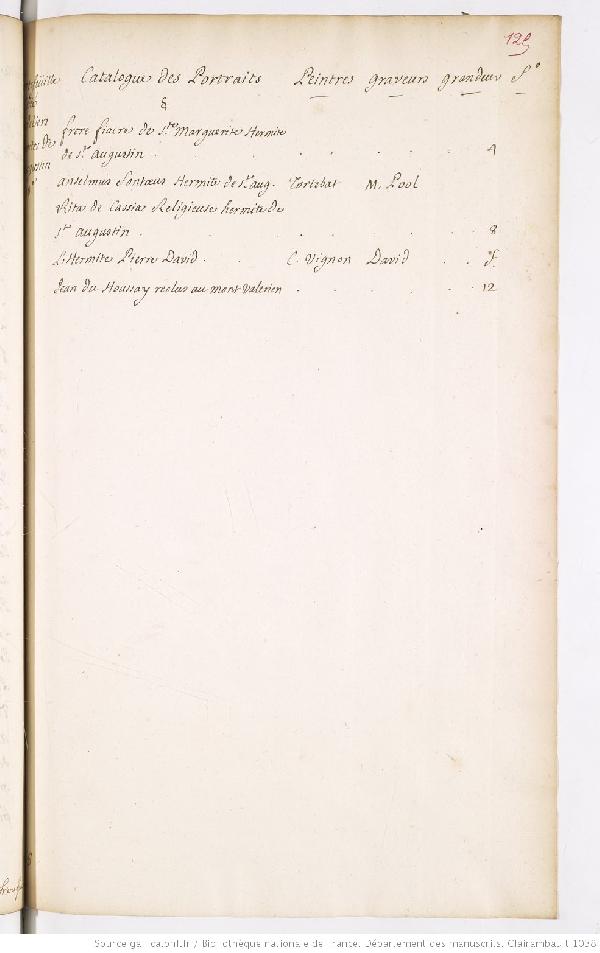 129
Catalogue des Portraits Peintres graveurs grandeur f°
§
frere fiacre de Ste Marguerite Hermite
de St. augustin . . . . . . 4
anselmus Hermite de St. aug. Tortebat M. Pool
Rita de Cassia Religieuse hermite de
St. augustin . . . . . 8
L'Hermite Pierre David . C. Vignon David . .
Jean du Houssay reclus au mont valerien . . . . . 12
Source gallica.bnf.fr / Bibliothèque nationale de France. Département des manuscrits. Clairambault 1038